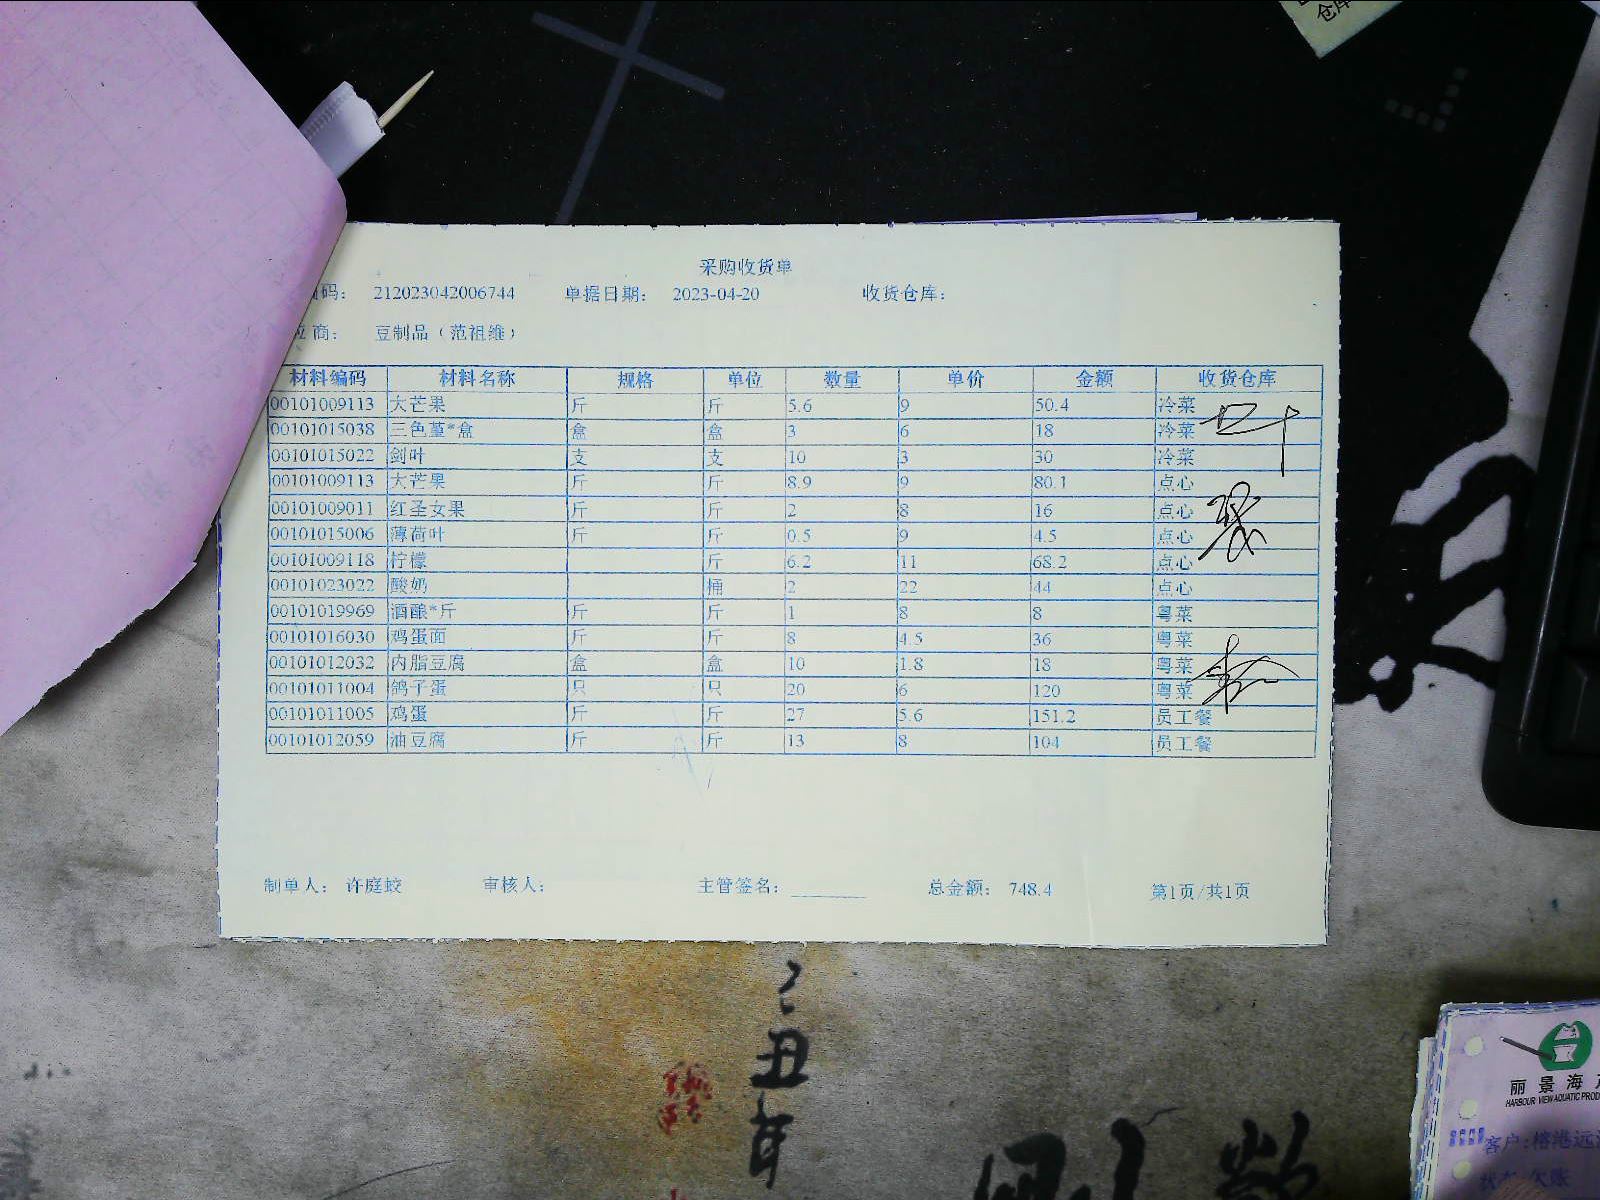 仓库
采购收货单
码： 212023042006744 单据日期： 2023-04-20 收货仓库：
应商： 豆制品（范祖维）
材料编码 材料名称 规格 单位 数量 单价 金额 收货仓库
00101009113 大芒果 斤 斤 5.6 9 50.4 冷菜
00101015038 三色堇*盒 盒 盒 3 6 18 冷菜
00101015022 剑叶 支 支 10 3 30 冷菜
00101009113 大芒果 斤 斤 8.9 9 80.1 点心
00101009011 红圣女果 斤 斤 2 8 16 点心
00101015006 薄荷叶 斤 斤 0.5 9 4.5 点心
00101009118 柠檬 斤 6.2 11 68.2 点心
00101023022 酸奶 桶 2 22 44 点心
00101019969 酒酿*斤 斤 斤 1 8 8 粤菜
00101016030 鸡蛋面 斤 斤 8 4.5 36 粤菜
00101012032 内脂豆腐 盒 盒 10 1.8 18 粤菜
00101011004 鸽子蛋 只 只 20 6 120 粤菜
00101011005 鸡蛋 斤 斤 27 5.6 151.2 员工餐
00101012059 油豆腐 斤 斤 13 8 104 员工餐
制单人： 许庭蛟 审核人： 主管签名：________ 总金额： 748.4 第1页/共1页
丑年
丽景海
HARBOUR VIEW AQUATIC PROD
客户:榕港远
欠账